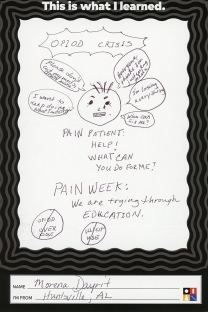 This is what I learned.
OPIOD CRISIS
Please don't
I'm losing
everything
I want to
WHO CAN
HELP ME?
PAIN PATIENT:
HELP!
WHAT CAN
YOU DO FOR ME?
PAIN WEEK:
We are trying through
EDUCATION.
OPIOD
OVER
DOSE
NAME Morena Dayrit
I'M FROM Huntsville, AL